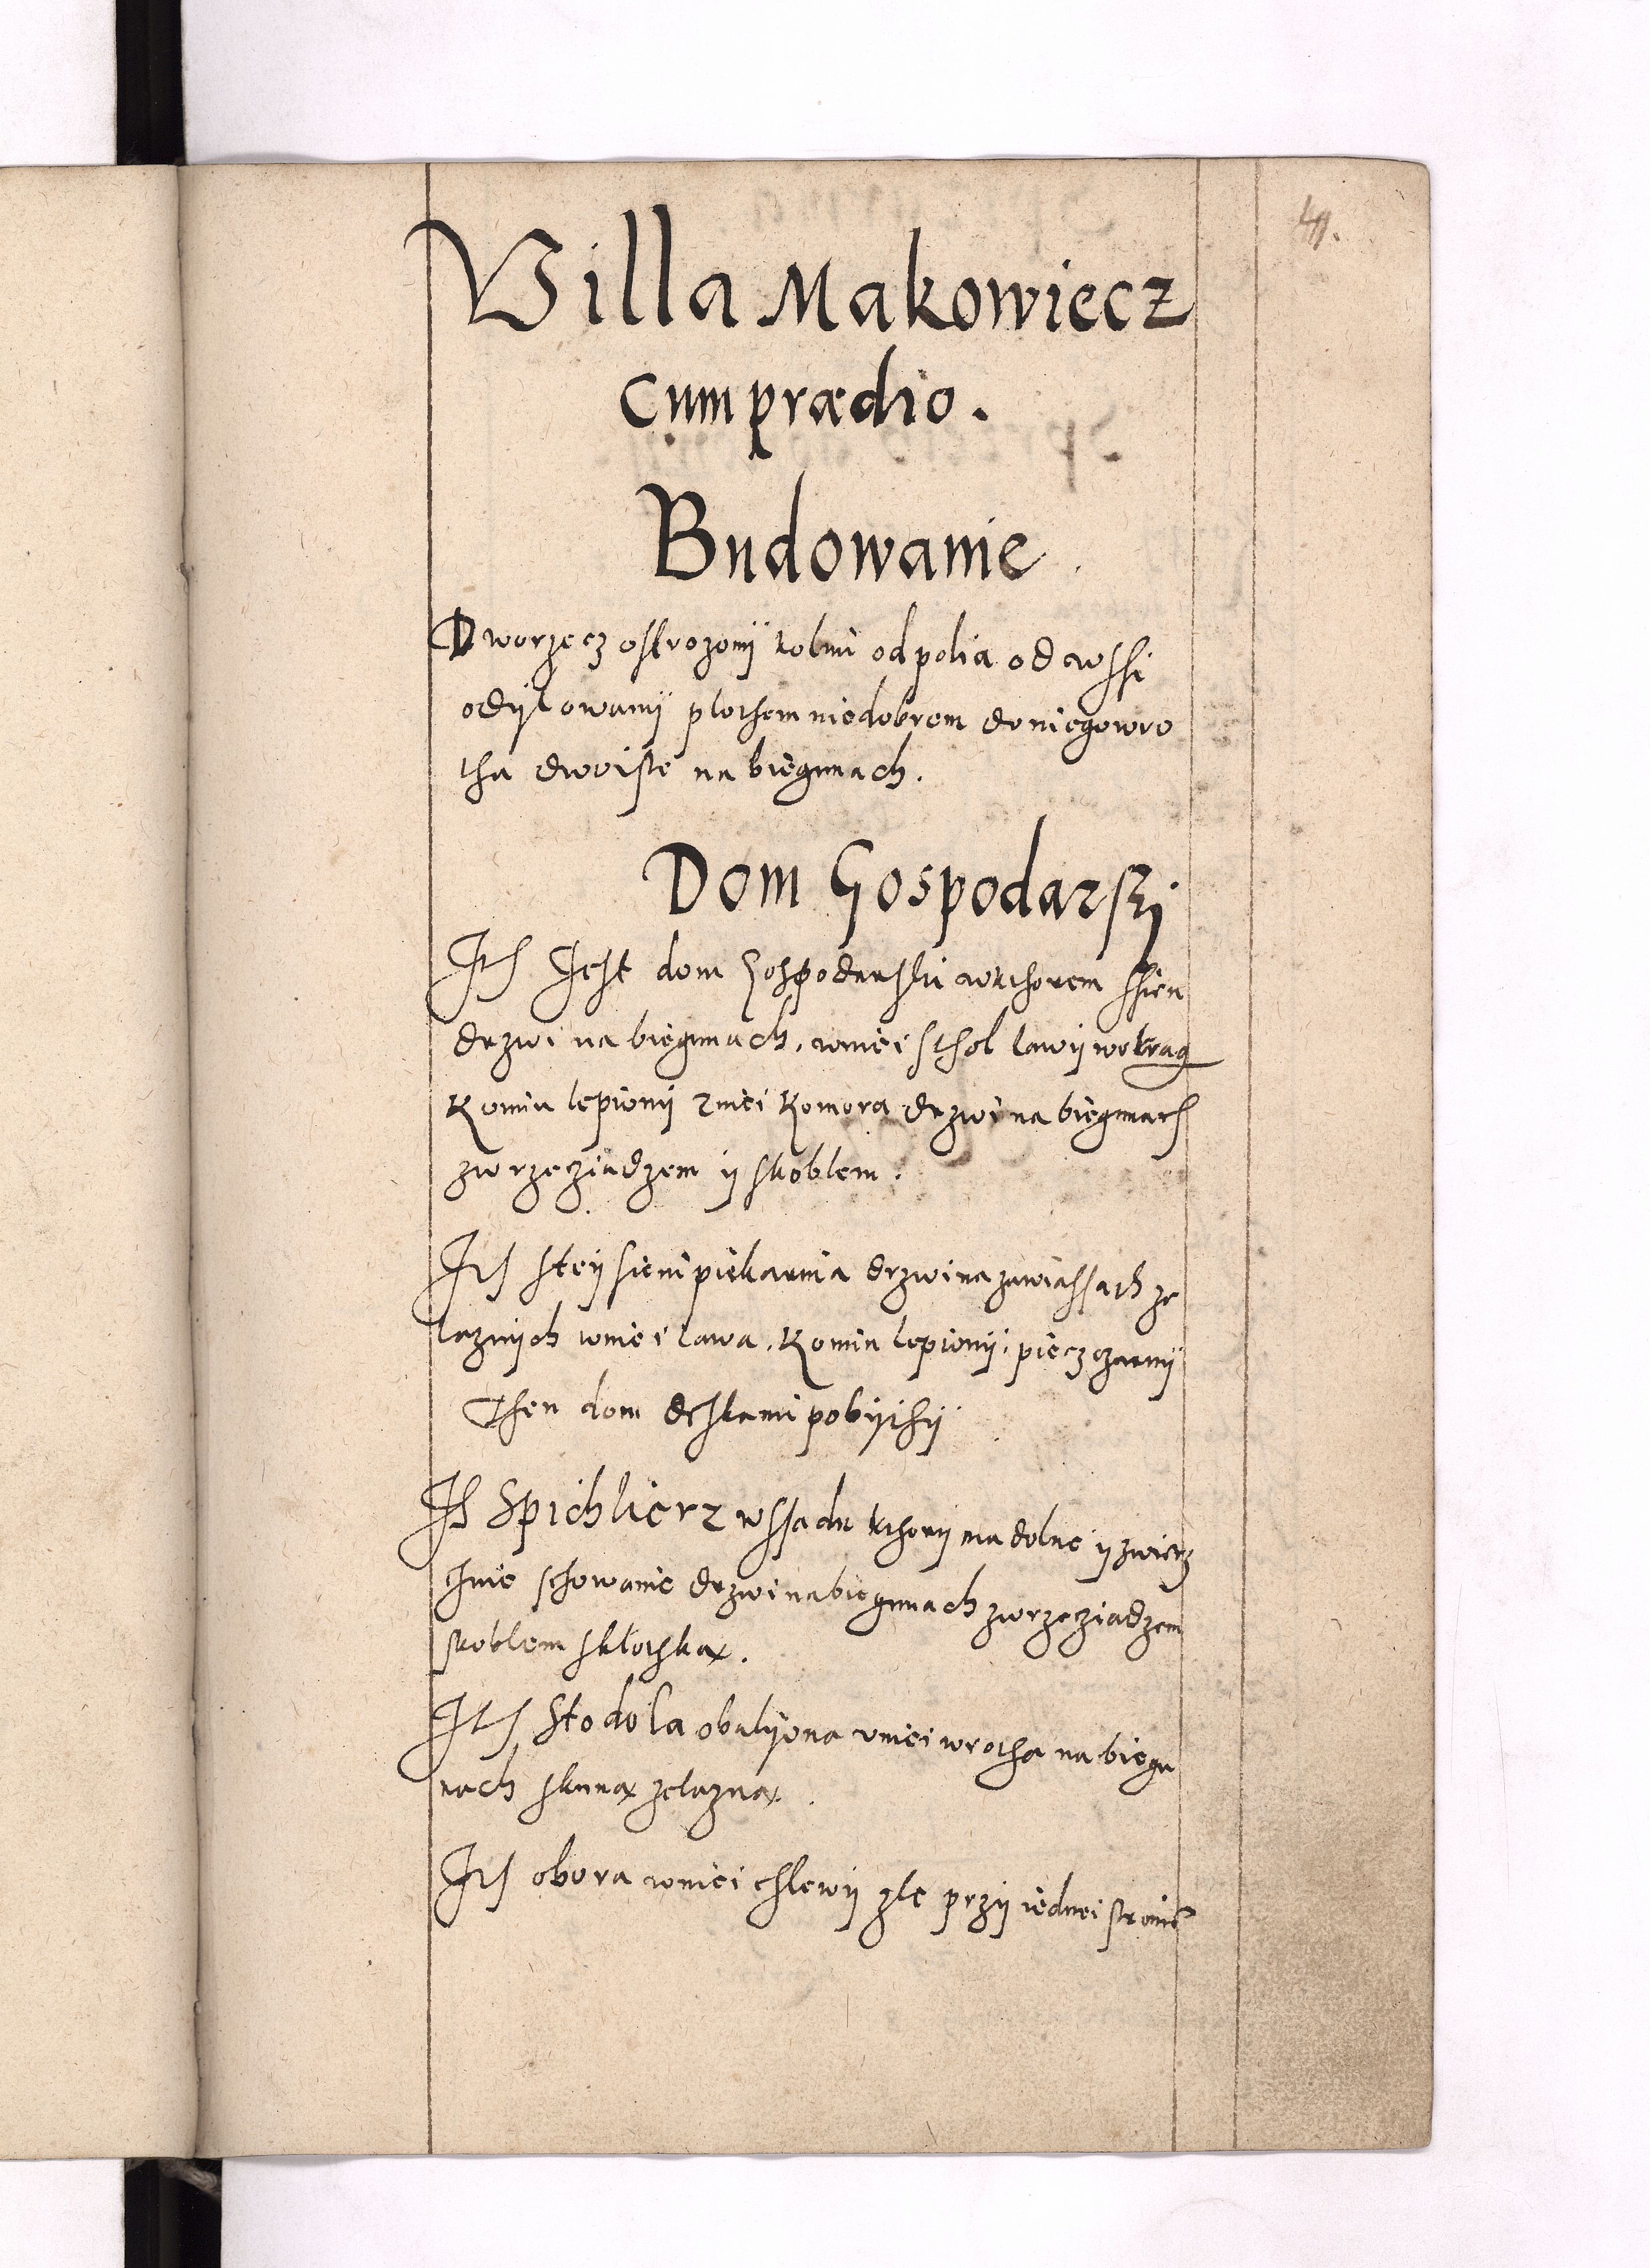 41.
Villa Makowiecz
cum prædio.
Budowanie
Dworzecz ostrozonÿ kolmi od polia od wssi
odÿlowanÿ plothem niedobrem do niego wro
tha dwoiste na biegunach.
Dom Gospodarski
Ith Jest dom Gospodarski wkthorem ssien
drzwi na biegunach, wniei sthol lawÿ wokrag
Komin lepionÿ zniei Komora drzwi na biegunach
zwrzecziadzem ÿ skoblem.
Ith steÿ sieni piekarnia drzwi na zawiassach ze
laznÿch wniei lawa, Komin lepionÿ, piecz czarnÿ
Then dom deskami pobÿthÿ
Ith Spichlierz wssadu kthorÿ ma dolne ÿ zwierz
chnie schowanie drzwi na biegunach zwrzecziadzem
skoblem skłothka.
Ith Stodola obalÿona vniei wrotha na biegu
nach skuna zelazna.
Ith obora wniei chlewÿ zle przÿ iednei stronie